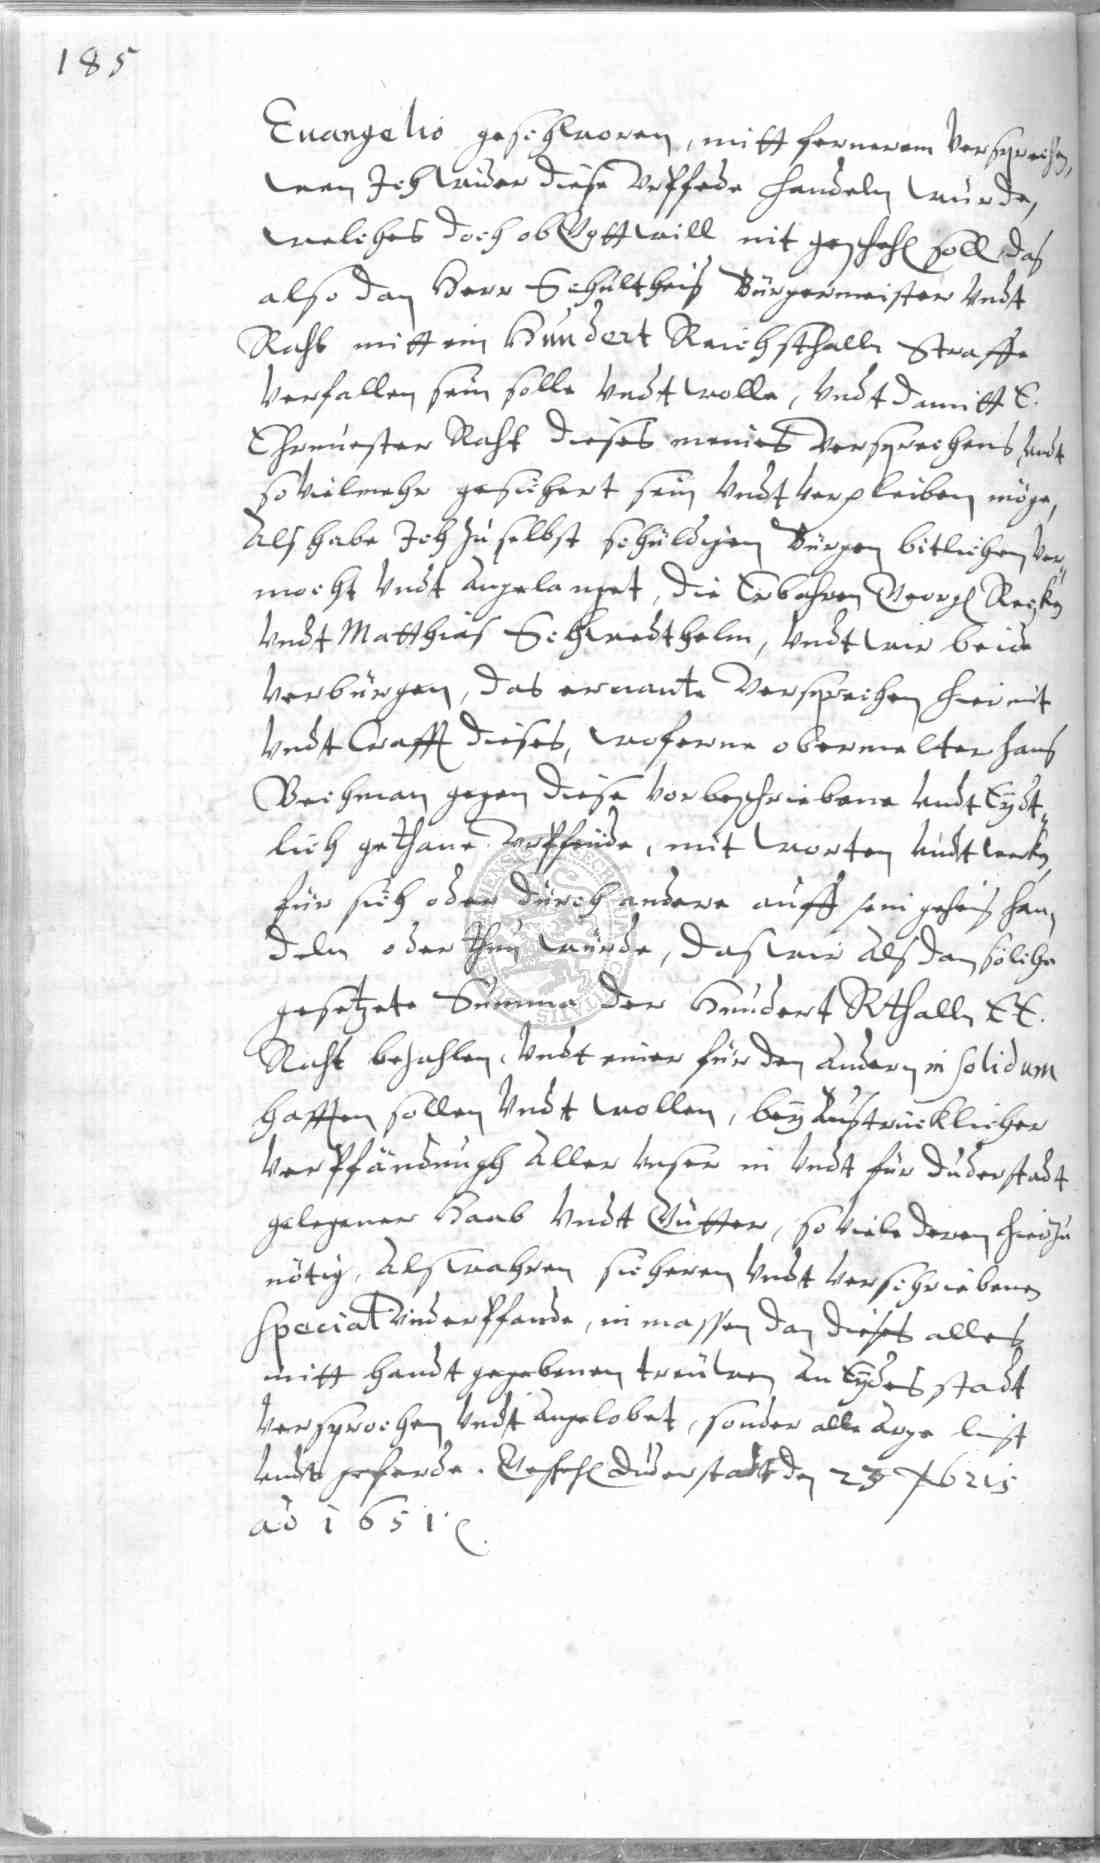 185
Euangelio geschworen, mitt fernerem Versprechen,
wen Ich wider diese Vrpffede handeln würde,
welches doch ob Gott will nit gescheh soll, das
also dan Herr Schultheis Bürgermeister Vndt
Raht mitt ein Hundert Reichsthalln Straffe
Verfallen sein solle Vndt wolle, Vndt damitt E.
Ehrnuester Raht dieses meines Versprechens halb
so vielmehr gesichert sein Vndt verpleiben möge,
Als habe Ich zu selbst schüldigen Bürgen bitlichen Ver-
mocht Vndt Angelanget, die Erbahren Georg
Vndt Matthias Schwedthelm, Vndt wir beide
Verbürgen, das ernante Versprechen hiemit
Vndt Crafft dieses, woferne obermelter Hans
Bechman gegen diese Vorbeschriebene Vndt Eydt-
lich gethane Vrpffeide, mit worten Vndt wercken,
für sich oder durch andere auff sein geheis han
deln oder thun würde, das wir Als dan solche
gesetzte Summa der Hundert Rthalln EE.
Raht bezahlen, Vndt einer für den Andern in solidum
hafften sollen Vndt wollen, bey Austrücklicher
Verpfändungh Aller Unser in Vndt für Duderstadt
gelegener Haab Vndt Gütter, so viele deren hierzu
nötig, Als wahren sicheren Vndt Verschriebenen
Special Vnderpfande, in massen dan dieses alles
mitt handt gegebenen treüwen An Eydes stadt
Versprochen Vndt Angelobet, sonder alle Arge list
Vndt geferde. Gescheh Duderstadt den 23 7bris
ao 1651.